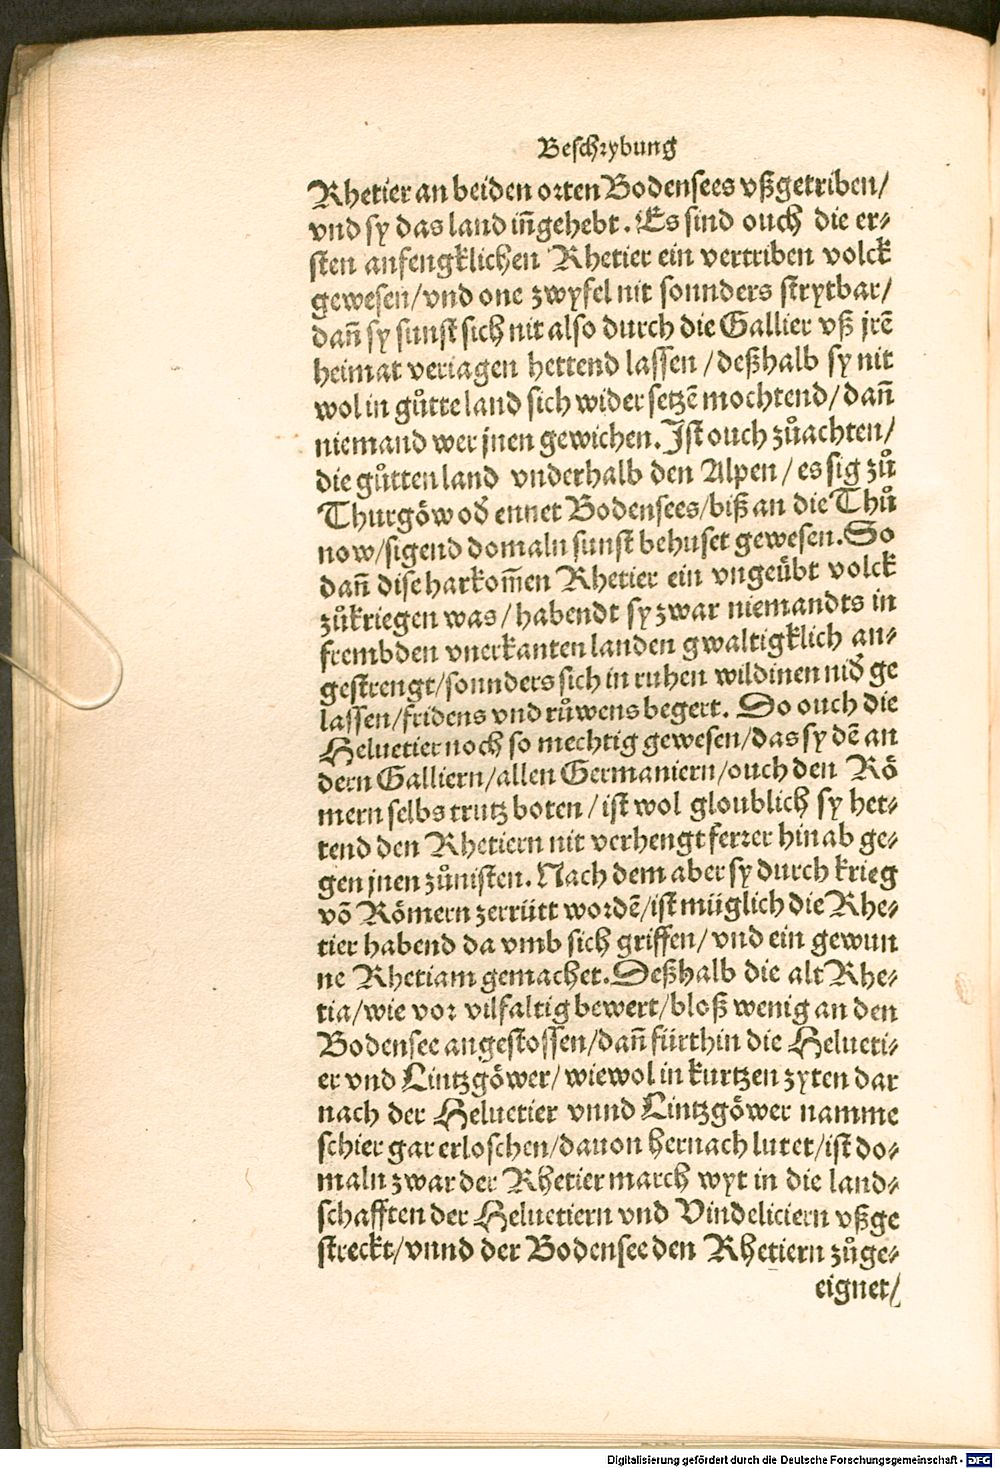 Beschrybung
Rhetier an beiden orten Bodensees vßgetriben/
vnd sy das land iñgehebt. Es sind ouch die er⸗
sten anfengklichen Rhetier ein vertriben volck
gewesen/vnd one zwyfel nit sonnders strytbar/
dañ sy sunst sich nit also durch die Gallier vß jrē
heimat veriagen hettend lassen /deßhalb sy nit
wol in gůtte land sich wider setzē mochtend/dañ
niemand wer jnen gewichen. Ist ouch zůachten/
die gůtten land vnderhalb den Alpen/ es sig zů
Thurgöw oď ennet Bodensees/biß an die Thů
now/sigend domaln sunst behuset gewesen. So
dañ dise harkom̄en Rhetier ein vngeübt volck
zůkriegen was/ habendt sy zwar niemandts in
frembden vnerkanten landen gwaltigklich an⸗
gestrengt/sonnders sich in ruhen wildinen niď ge
lassen/fridens vnd růwens begert. So ouch die
Heluetier noch so mechtig gewesen/das sy dē an
dern Galliern/allen Germaniern/ouch den Rö
mern selbs trutz boten/ist wol gloublich sy het⸗
tend den Rhetiern nit verhengt ferrer hinab ge⸗
gen jnen zůnisten. Nach dem aber sy durch krieg
vō Römern zerrütt wordē/ist müglich die Rhe⸗
tier habend da vmb sich griffen/ vnd ein gewun
ne Rhetiam gemachet. Deßhalb die alt Rhe⸗
tia/wie vor vilfaltig bewert/bloß wenig an den
Bodensee angestossen/dañ fürthin die Helueti⸗
er vnd Lintzgöwer/ wiewol in kurtzen zyten dar
nach der Heluetier vnnd Lintzgöwer namme
schier gar erloschen/dauon hernach lutet/ist do⸗
maln zwar der Rhetier march wyt in die land⸗
schafften der Heluetiern vnd Vindeliciern vßge
streckt/vnnd der Bodensee den Rhetiern zůge⸗
eignet/
Digitalisierung gefördert durch die Deutsche Forschungsgemeinschaft - DFG